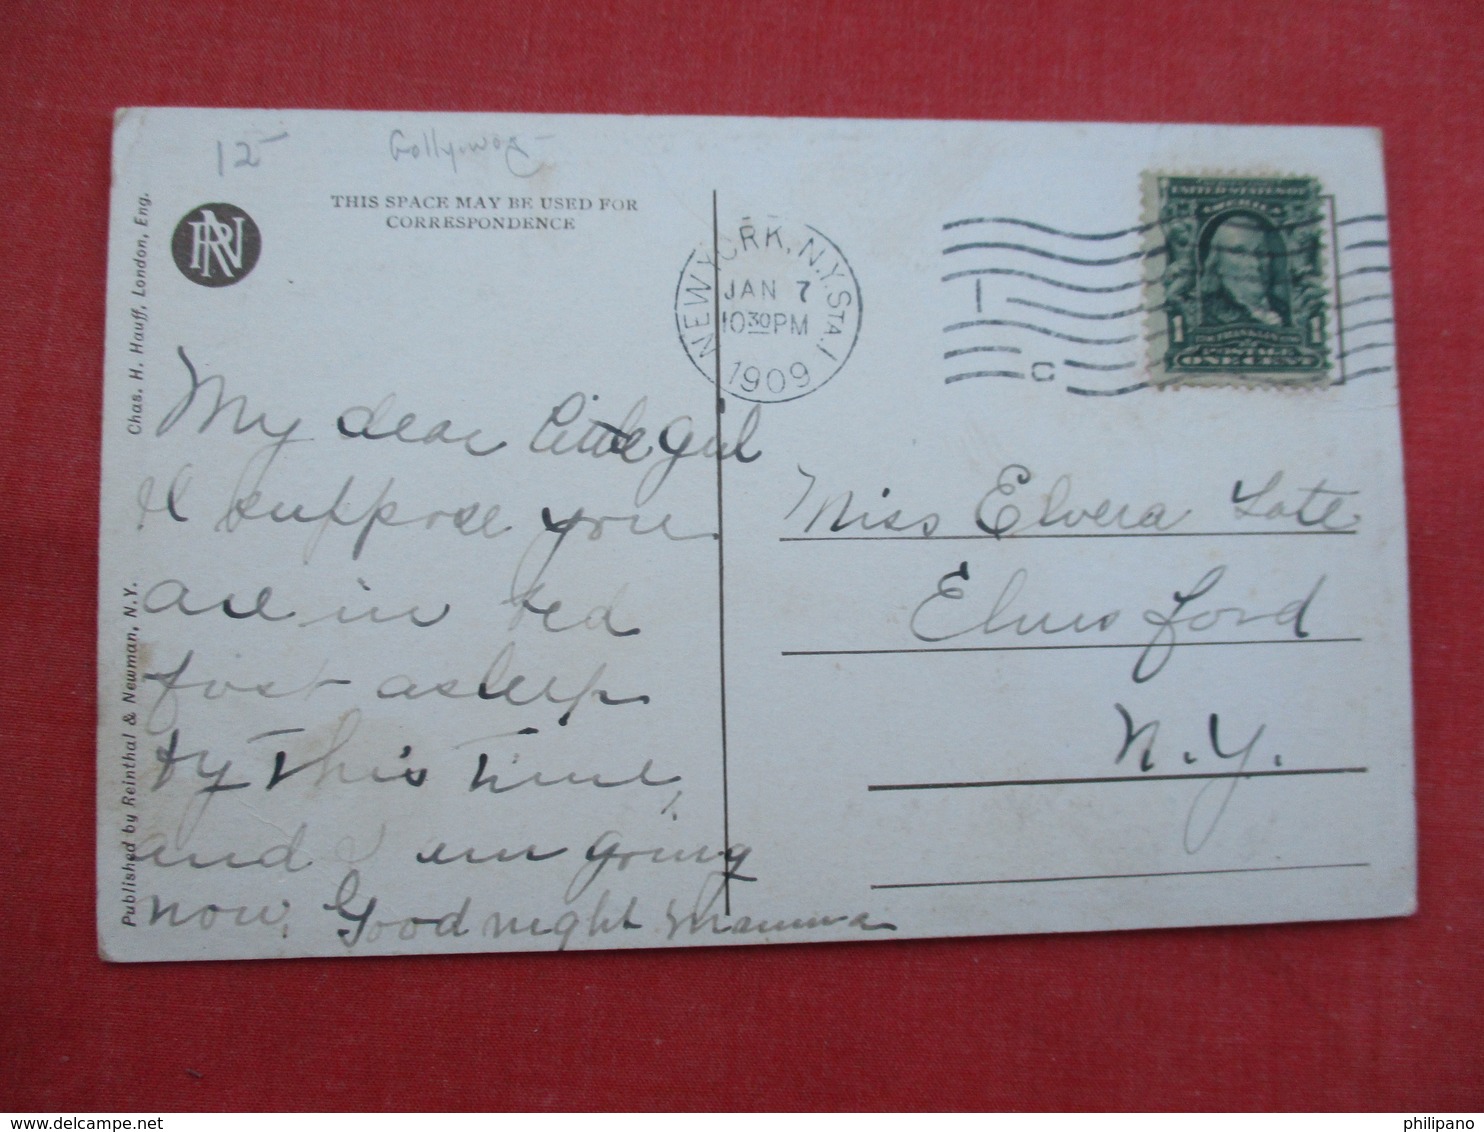 12
Gollywog
THIS SPACE MAY BE USED FOR
CORRESPONDENCE
Chas. H. Hauff, London, Eng.
Published by Reinthal & Newman, N.Y.
RN
NEW YORK, N.Y. STA. I
JAN 7
10 30 PM
1909
I
C
UNITED STATES OF
AMERICA
1 1
POSTAGE
ONE CENT
My dear little girl
I suppose you
are in bed
fast asleep
by this time,
and I am going
now. Good night Mamma
Miss Elvera Tate
Elmsford
N.Y.
philipano
delcampe.net